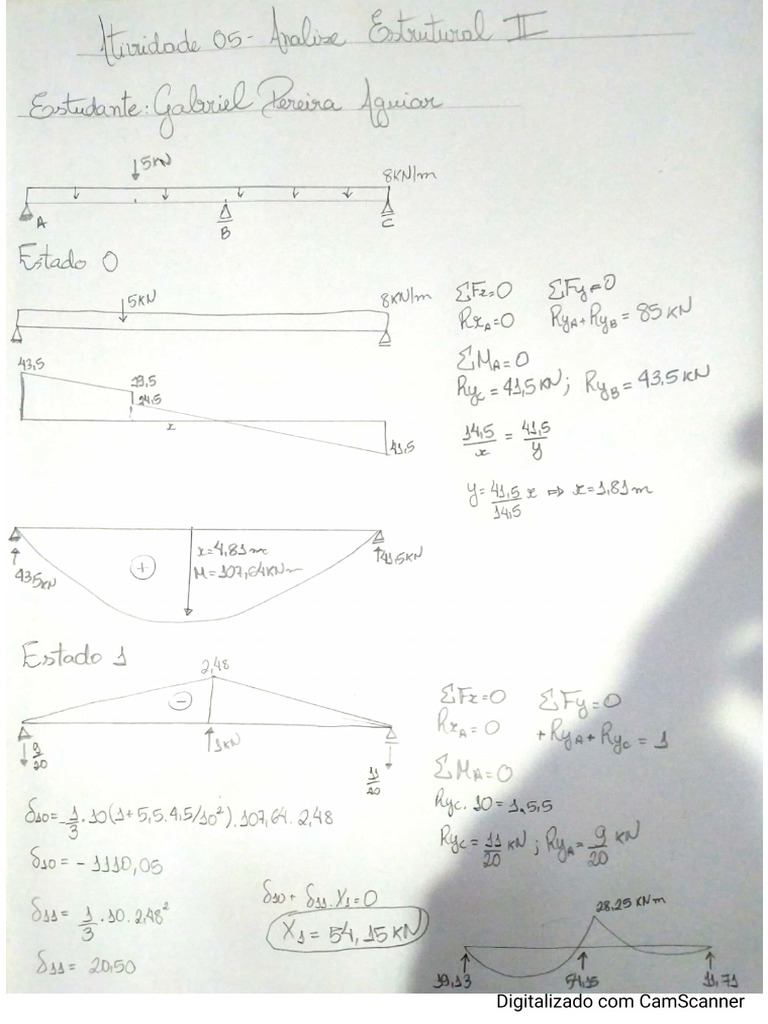 Atividade 05 - Analise Estrutural II
Estudante: Gabriel Pereira Aguiar
5KN
8KN/m
A
B
C
Estado 0
5KN
8KN/m
ΣFx=0 ΣFy=0
RxA=0 RyA+RyB = 85 KN
ΣMA=0
RyC = 41,5 KN; RyB = 43,5 KN
43,5
29,5
24,5
x
41,5
14,5/x = 41,5/y
y = 41,5/14,5 x ⇒ x=1,81m
+
x=4,81m
M=107,64KNm
43,5KN
41,5KN
Estado 1
2,48
-
1KN
9/20
11/20
ΣFx=0 ΣFy=0
RxA=0 +RyA+RyC = 1
ΣMA=0
RyC.10=1.5,5
RyC=11/20 KN; RyA=9/20 KN
δ10=-1/3.10(1+5,5.4,5/10²).107,64.2,48
δ10=-1110,05
δ11=1/3.10.2,48²
δ11=20,50
δ10+δ11.X1=0
X1=54,15KN
28,25 KNm
19,13
54,15
11,71
Digitalizado com CamScanner